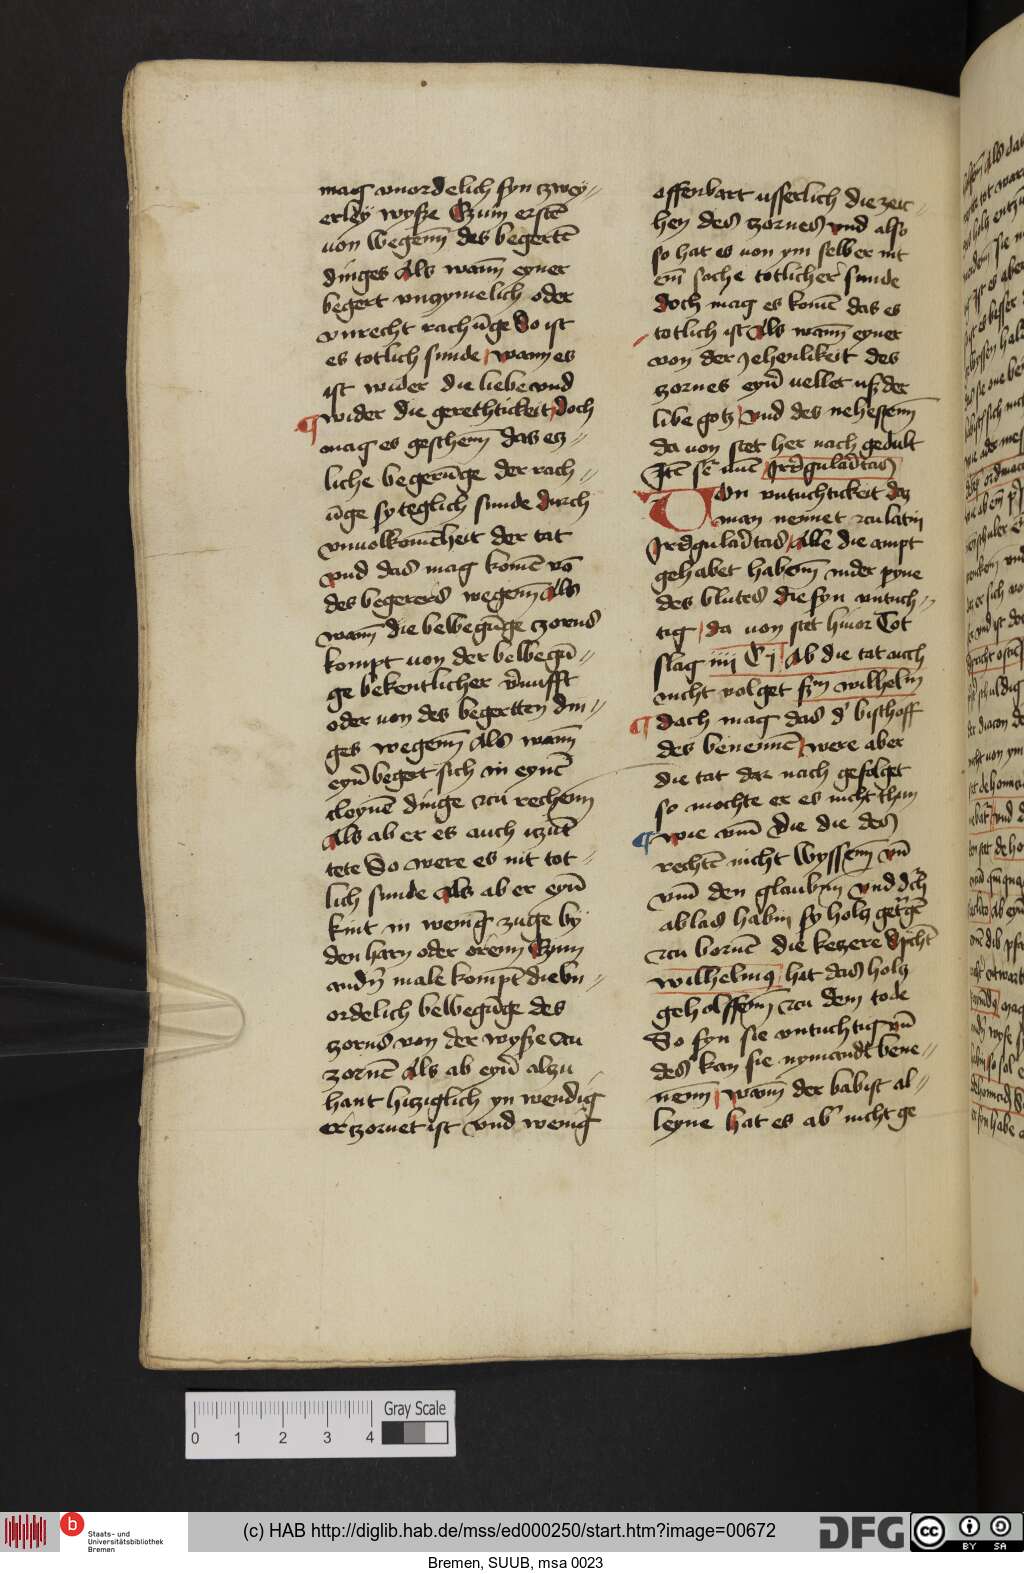 mag vnordelich syn zwey=
erley wyße Czum erstē
von wegenn des begertē
dinges Als wann eyner
begert vngymelich oder
vnrecht rachūge So ist
es totlich sunde wann es
ist wider die liebe vnd
wider die gerechtickeit doch
mag es geschenn das ez=
liche begerūge der rach=
ūge sy teglich sunde durch
vnuolkomēheit der tat
vnd das mag komē vō
des begerers wegenn Als
wann die bewegūge zorns
kompt von der bewegū=
ge bekentlicher v̄nufft
oder von des begertten din=
ges wegenn Als wann
eyn̄ begert sich in eynē
cleynē dinge zcu rechenn
Als ab er es auch iczūt
tete So were es nit tot=
lich sunde Als ab er eyn̄
kint in wenīg zuge by
den harn oder orenn Czum
andn̄ male kompt die vn=
ordelich bewegūge des
zorns von der wyße zcu
zornē Als ab eyn̄ alzu
hant hitziglich yn wendig
erzornet ist vnd wenīg
offenbart usserlich die zeic=
hen des zornes vnd also
so hat es von ym selber nit
ein sache totlicher sunde
doch mag es komē das es
totlich ist Als wann eyner
von der jehenlikeit des
zornes eyn̄ vellet uß der
libe gotz vnd des nehestenn
da von stet her nach gedult
Von vntuchtickeit daz
man nennet zcu latin
Alle die ampt
gehabet habenn uider pyne
des blutes die syn vntuch=
tig da von stet hiuor Tot
slag iiij Ab die tat auch
nicht volget wilhelm
dach mag das d' bisthoff
des benennē were aber
die tat dar nach gefolget
so mochte er es nicht thun
wie vm̄ die die des
rechtē nicht wyssenn vn̄
vm̄ den glaubin vnd
ablas habin sy holtz
zcu bornē die kezere
wilhelmus hat das holtz
geholffenn zcu dem tode
So syn sie vntuchtig vn̄
des kan sie nymandt bene=
nenn wann der babist al=
leyne hat es ab' nicht ge
0 1 2 3 4
Gray Scale
Staats- und
Universitätsbibliothek
Bremen
(c) HAB http://diglib.hab.de/mss/ed000250/start.htm?image=00672
DFG
cc BY SA
Bremen, SUUB, msa 0023